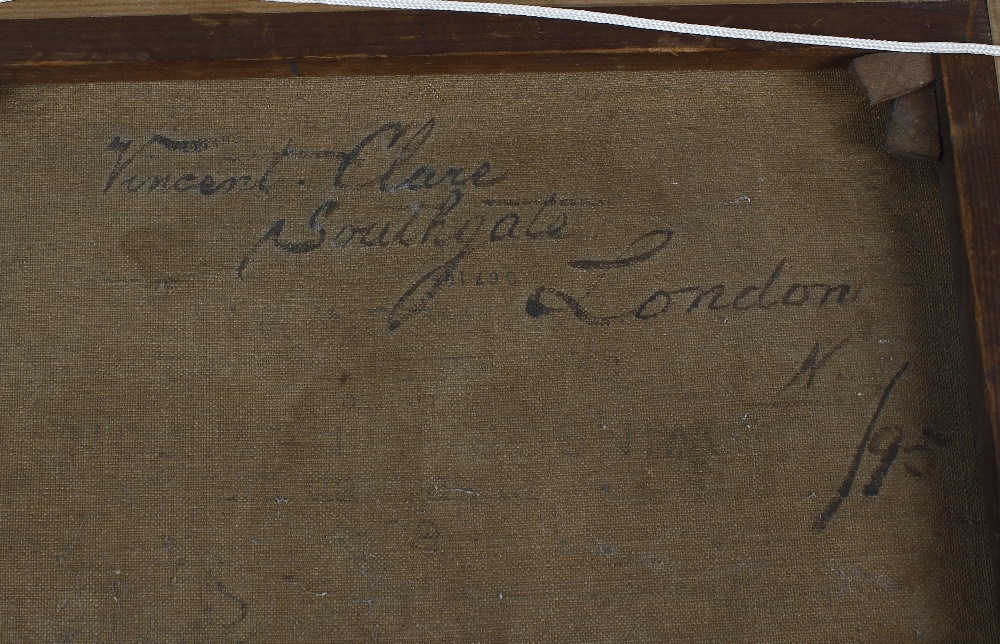 Vincent. Clare
Southgate
London
N.
/95